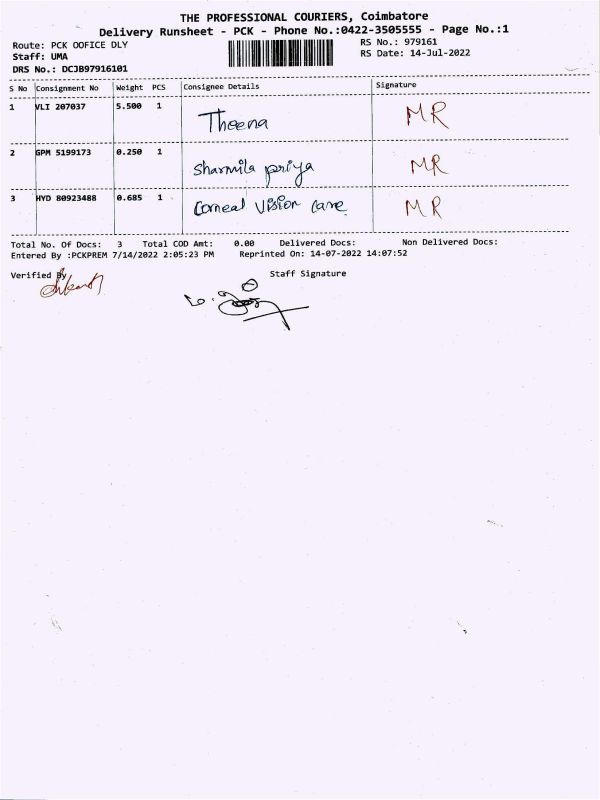 THE PROFESSIONAL COURIERS, Coimbatore
Delivery Runsheet - PCK - Phone No.:0422-3505555 - Page No.:1
Route: PCK OOFICE DLY
RS No.: 979161
Staff: UMA
RS Date: 14-Jul-2022
DRS No.: DCJB97916101
S No Consignment No Weight PCS Consignee Details Signature
1 VLI 207037 5.500 1 Theena MR
2 GPM 5199173 0.250 1 Sharmila priya MR
3 HYD 80923488 0.685 1 Corneal Vision Care MR
Total No. Of Docs: 3 Total COD Amt: 0.00 Delivered Docs: Non Delivered Docs:
Entered By :PCKPREM 7/14/2022 2:05:23 PM Reprinted On: 14-07-2022 14:07:52
Verified By Staff Signature